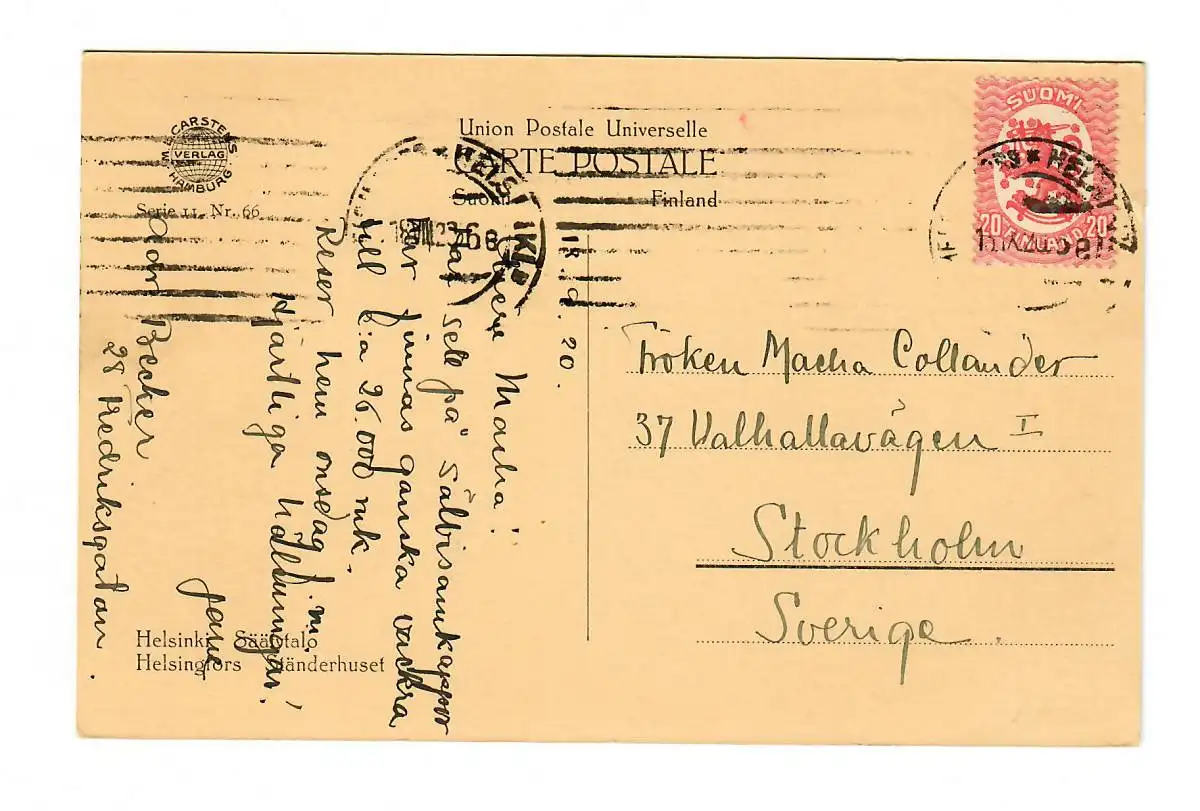 W. CARSTENS
VERLAG
HAMBURG
Serie 11. Nr. 66
Union Postale Universelle
CARTE POSTALE
Suomi Finland
SUOMI
20 FINLAND 20
HELSINKI
18.IX.20.
Macha!
Har sett på sälbisamkappor
här finnas ganska vackra
till o:a 26.000 mk.
Reser hem onsdag
Hjärtliga hälsningar!
Becker
28 Fredriksgatan.
Fröken Macha Collander
37 Valhallavägen I
Stockholm
Sverige.
Helsinki Säätytalo
Helsingfors Ständerhuset